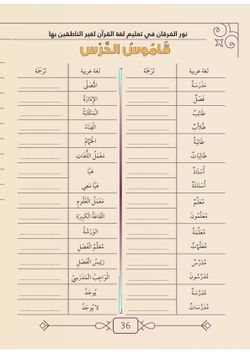 نور الفرقان في تعليم لغة القرآن لغير الناطقين بها
قَامُوسُ الدَّرْسِ
لغة عربية تَرْجَمَة لغة عربية تَرْجَمَة
مَدْرَسَةٌ
فَصْلٌ
طَالِبٌ
طُلَّابٌ
طَالِبَةٌ
طَالِبَاتٌ
أُسْتَاذٌ
أُسْتَاذَةٌ
مُعَلِّمٌ
مُعَلِّمُونَ
مُعَلِّمَةٌ
مُعَلِّمَاتٌ
مُدَرِّسٌ
مُدَرِّسُونَ
مُدَرِّسَةٌ
مُدَرِّسَاتٌ
الْمُصَلَّى
الْإِدَارَةُ
الْمَكْتَبَةُ
الْفِنَاءُ
الْحَمَّامُ
مَعْمَلُ اللُّغَاتِ
هَيَّا
هَيَّا مَعِي
مَعْمَلُ الْعُلُومِ
الْقَاعَةُ الْكَبِيرَةُ
الْوَرْشَةُ
مُعَلِّمُ الْفَصْلِ
رَئِيسُ الْفَصْلِ
الْوَاجِبُ الْمَدْرَسِيُّ
يُوجَدُ
لَا يُوجَدُ
36